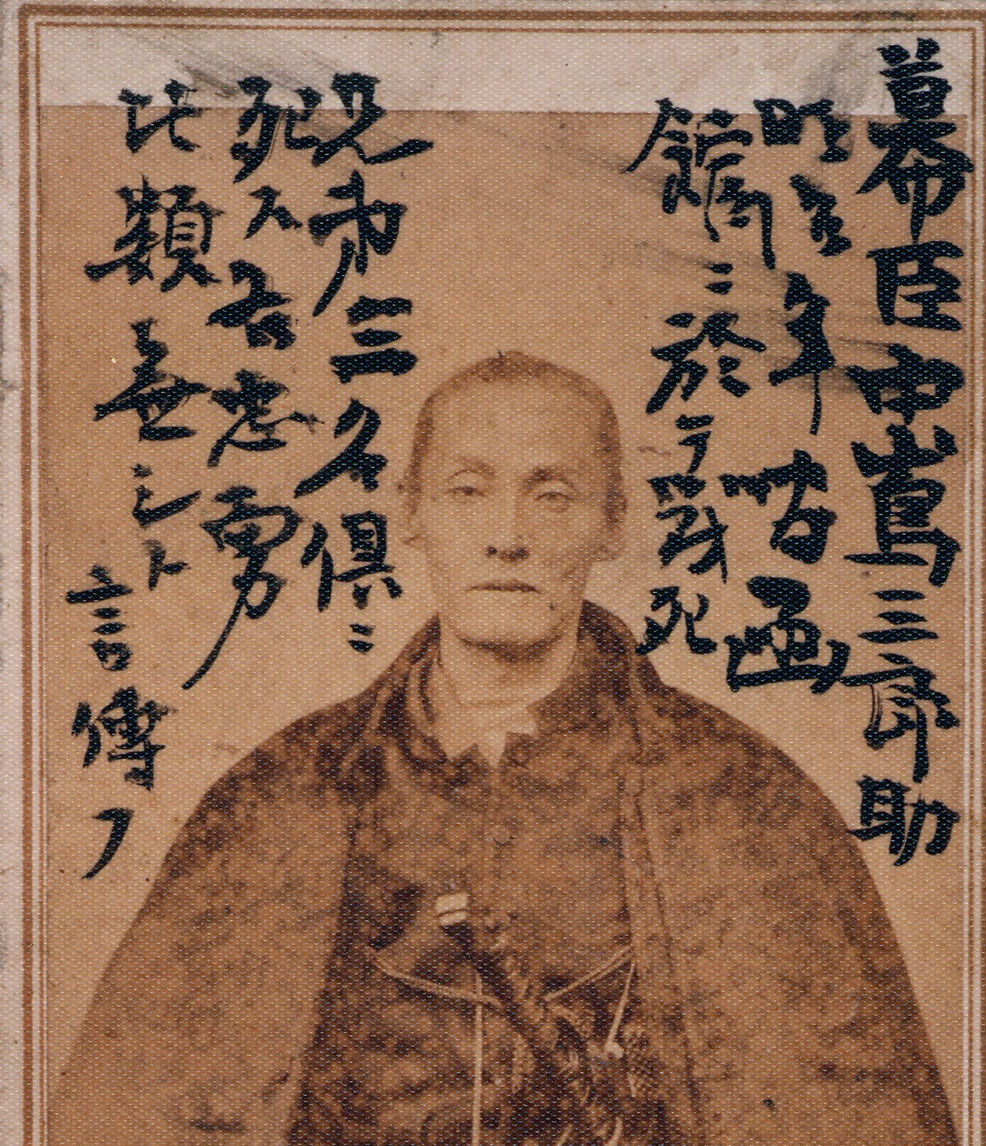 幕臣中嶌三郎助
明治年函
館ニ於テ戦死
兄弟三名俱ニ
死ス忠勇
比類無シト言傳フ